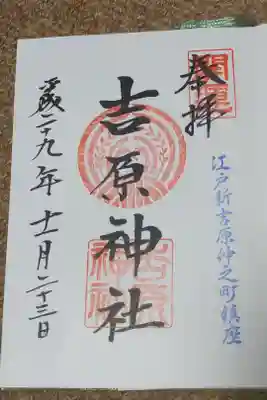 開運
奉拝
江戸新吉原仲之町鎮座
吉原神社
吉原神社
平成二十九年十一月二十三日